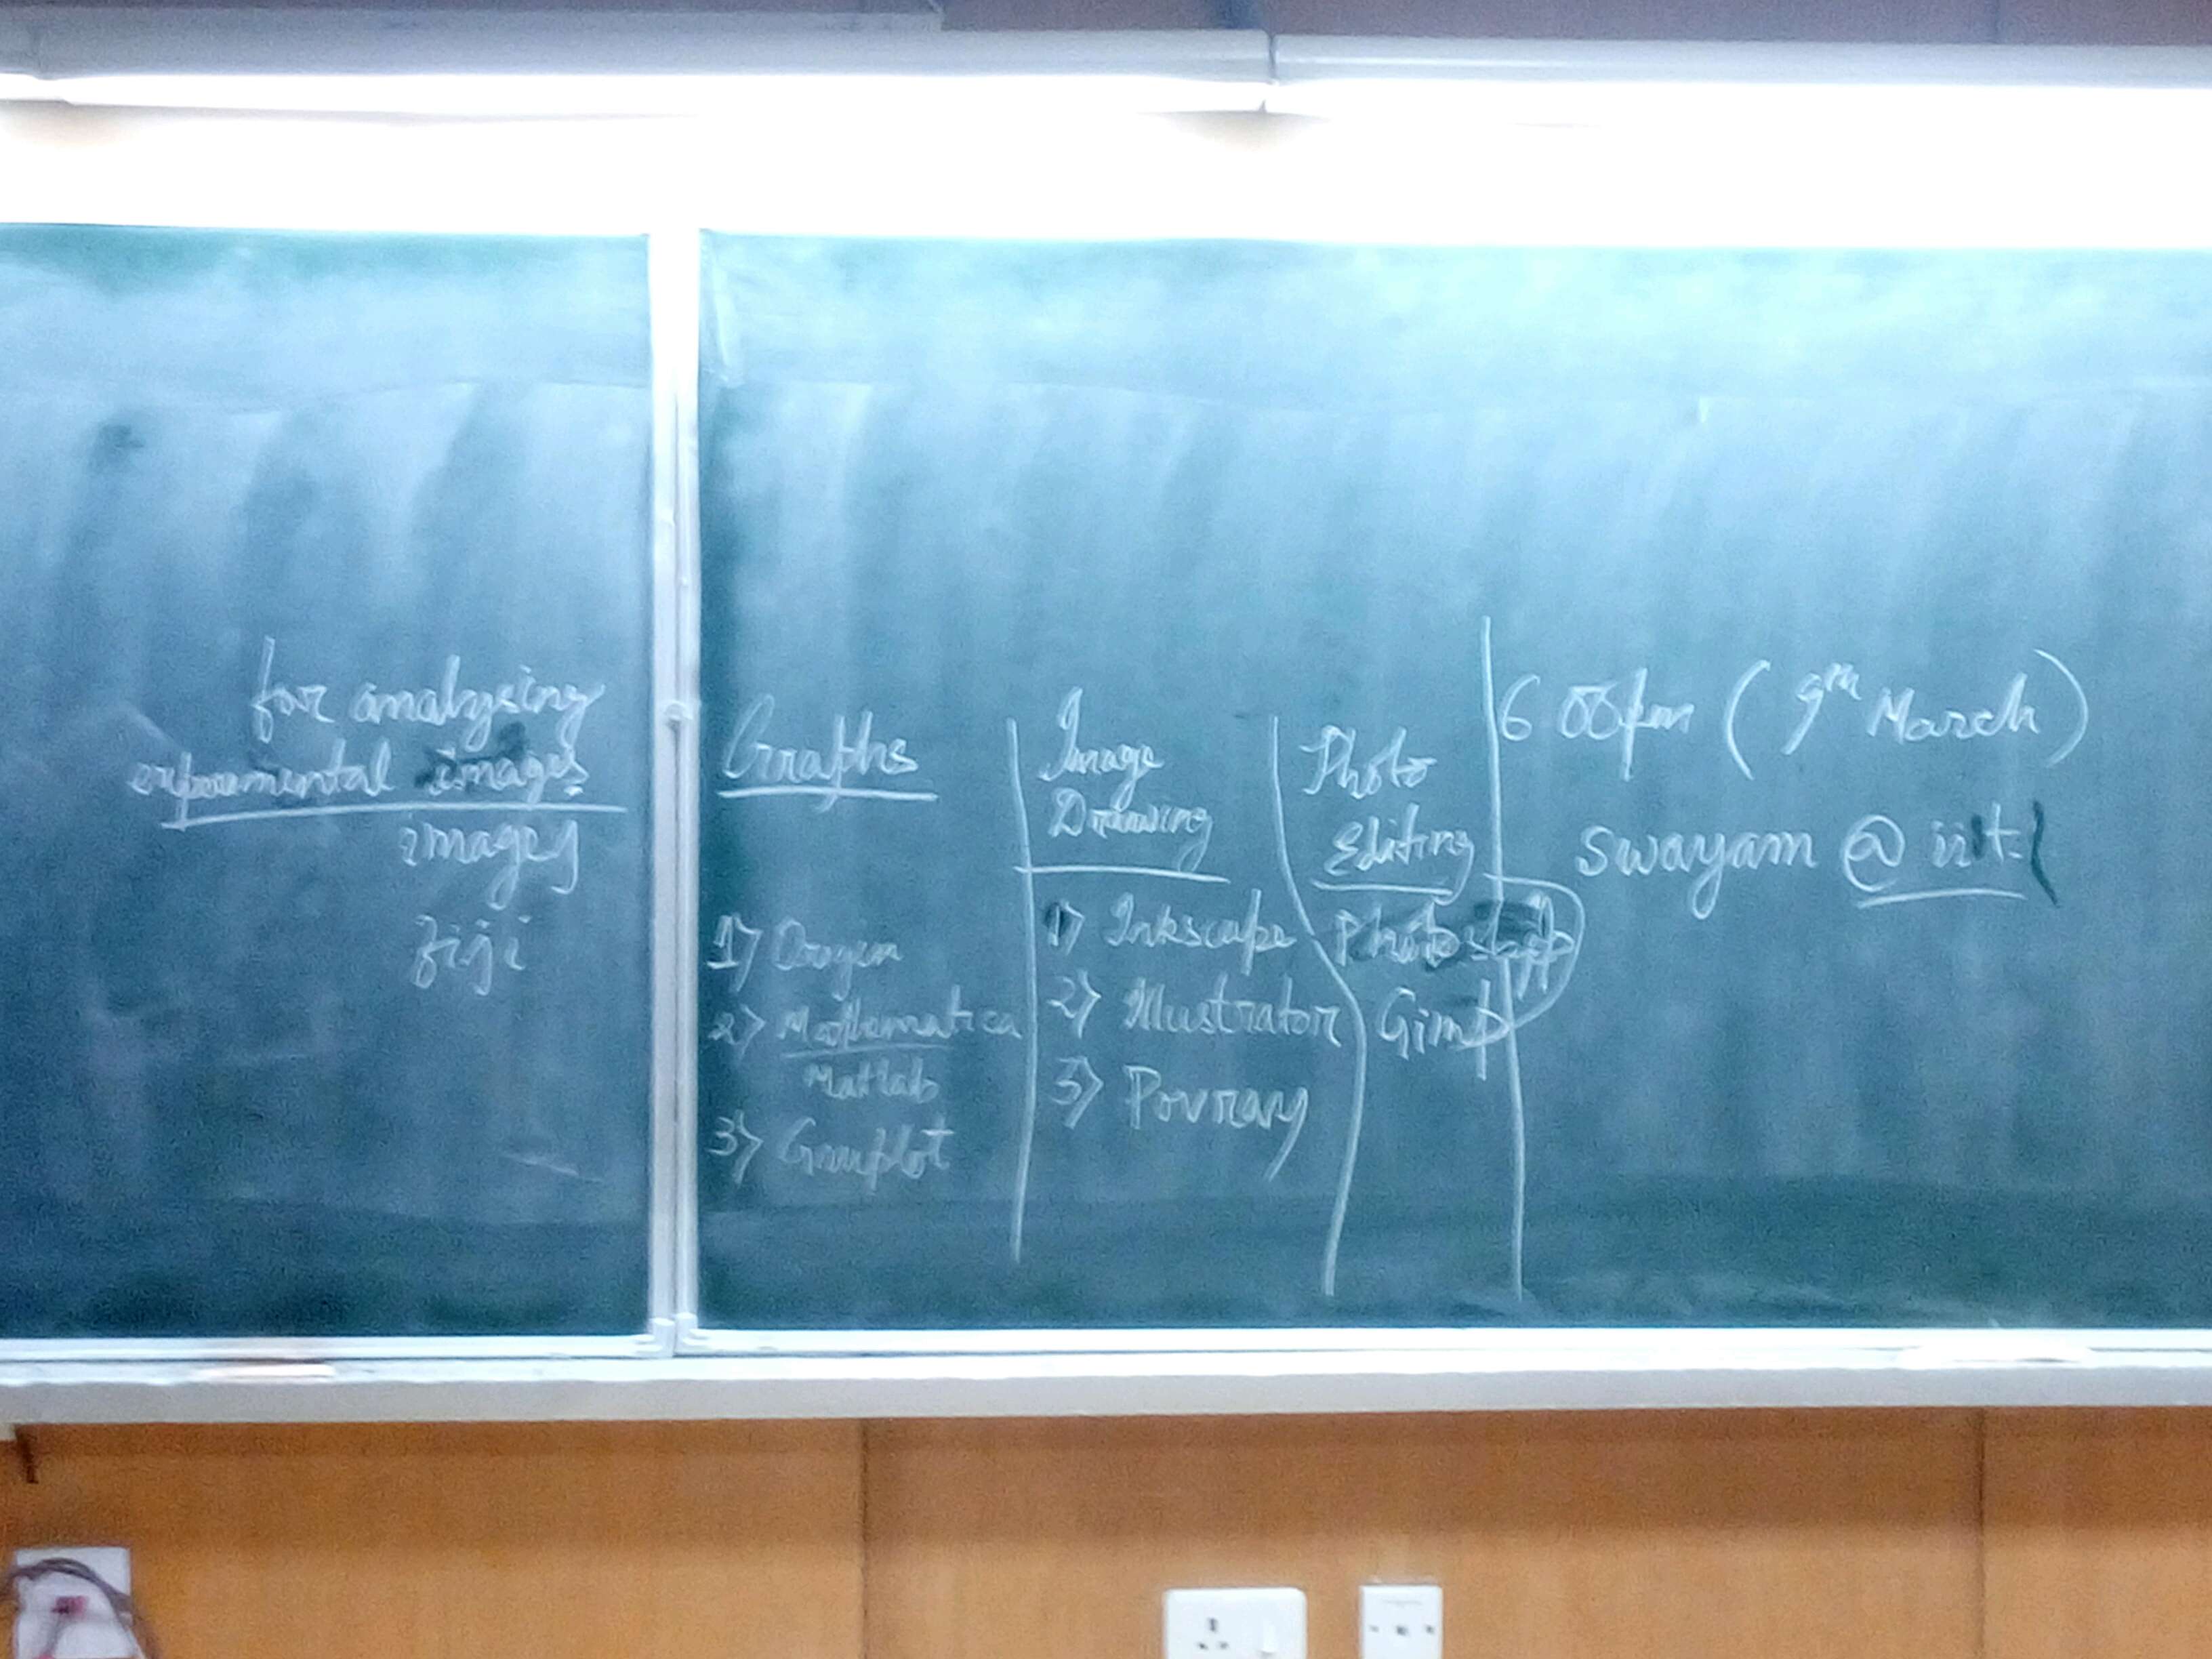 for analysing
experimental images
imagej
fiji
Graphs
1) Origin
2) Mathematica
Matlab
3) Gnuplot
Image
Drawing
1) Inkscape
2) Illustrator
3) Povray
Photo
Editing
Photoshop
Gimp
6 00pm (9th March)
swayam @ iit